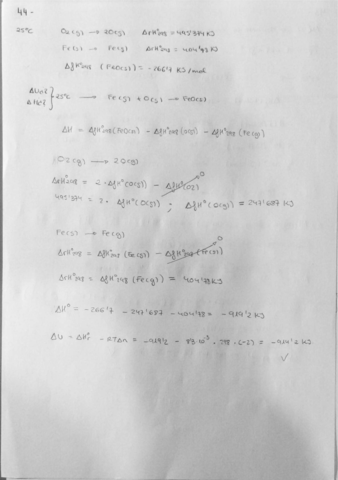 44-
25ºC O2(g) → 2O(g) ΔrHº298 = 495'374 KJ
Fe(s) → Fe(g) ΔrHº298 = 404'43 KJ
ΔfHº298 (FeO(s)) = -266'7 KJ/mol
25ºC → Fe(g) + O(g) → FeO(s)
ΔH = ΔfHº298(FeO(s)) - ΔfHº298(O(g)) - ΔfHº298(Fe(g))
O2(g) → 2O(g)
ΔrHº298 = 2·ΔfHº(O(g)) - ΔfHº(O2) 0
495'374 = 2·ΔfHº(O(g)) ; ΔfHº(O(g)) = 247'687 KJ
Fe(s) → Fe(g)
ΔrHº298 = ΔfHº298(Fe(g)) - ΔfHº298(Fe(s)) 0
ΔrHº298 = ΔfHº298(Fe(g)) = 404'43 KJ
ΔHº = -266'7 - 247'687 - 404'43 = -919'2 KJ
ΔU = ΔHº - RTΔn = -919'2 - 8'3·10⁻³ · 298 · (-2) = -914'2 KJ